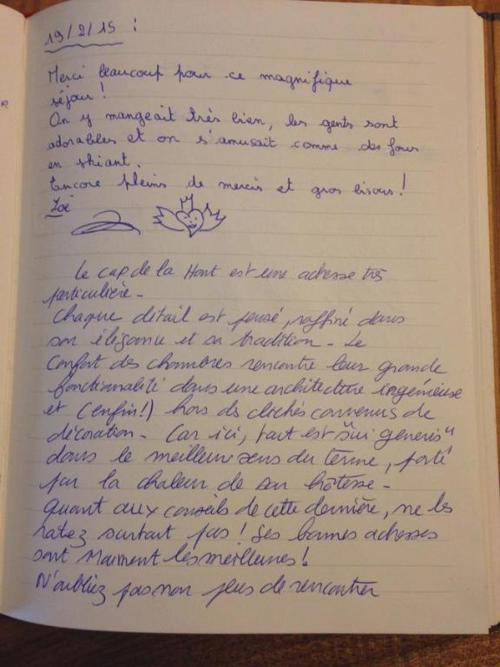 19/2/15 :
Merci beaucoup pour ce magnifique
séjour !
On y mangeait très bien, les gents sont
adorables et on s'amusait comme des fous
en skiant.
Encore pleins de mercis et gros bisous !
Zoé
Le cap de la Hont est une adresse très
particulière -
Chaque détail est pensé, raffiné dans
son élégance et sa tradition - Le
confort des chambres rencontre leur grande
fonctionnalité dans une architecture ingénieuse
et (enfin!) hors des clichés convenus de
décoration - Car ici, tout est "sui generis"
dans le meilleur sens du terme, porté
par la chaleur de son hôtesse -
Quant aux conseils de cette dernière, ne les
ratez surtout pas ! Ses bonnes adresses
sont vraiment les meilleures !
N'oubliez pas non plus de rencontrer